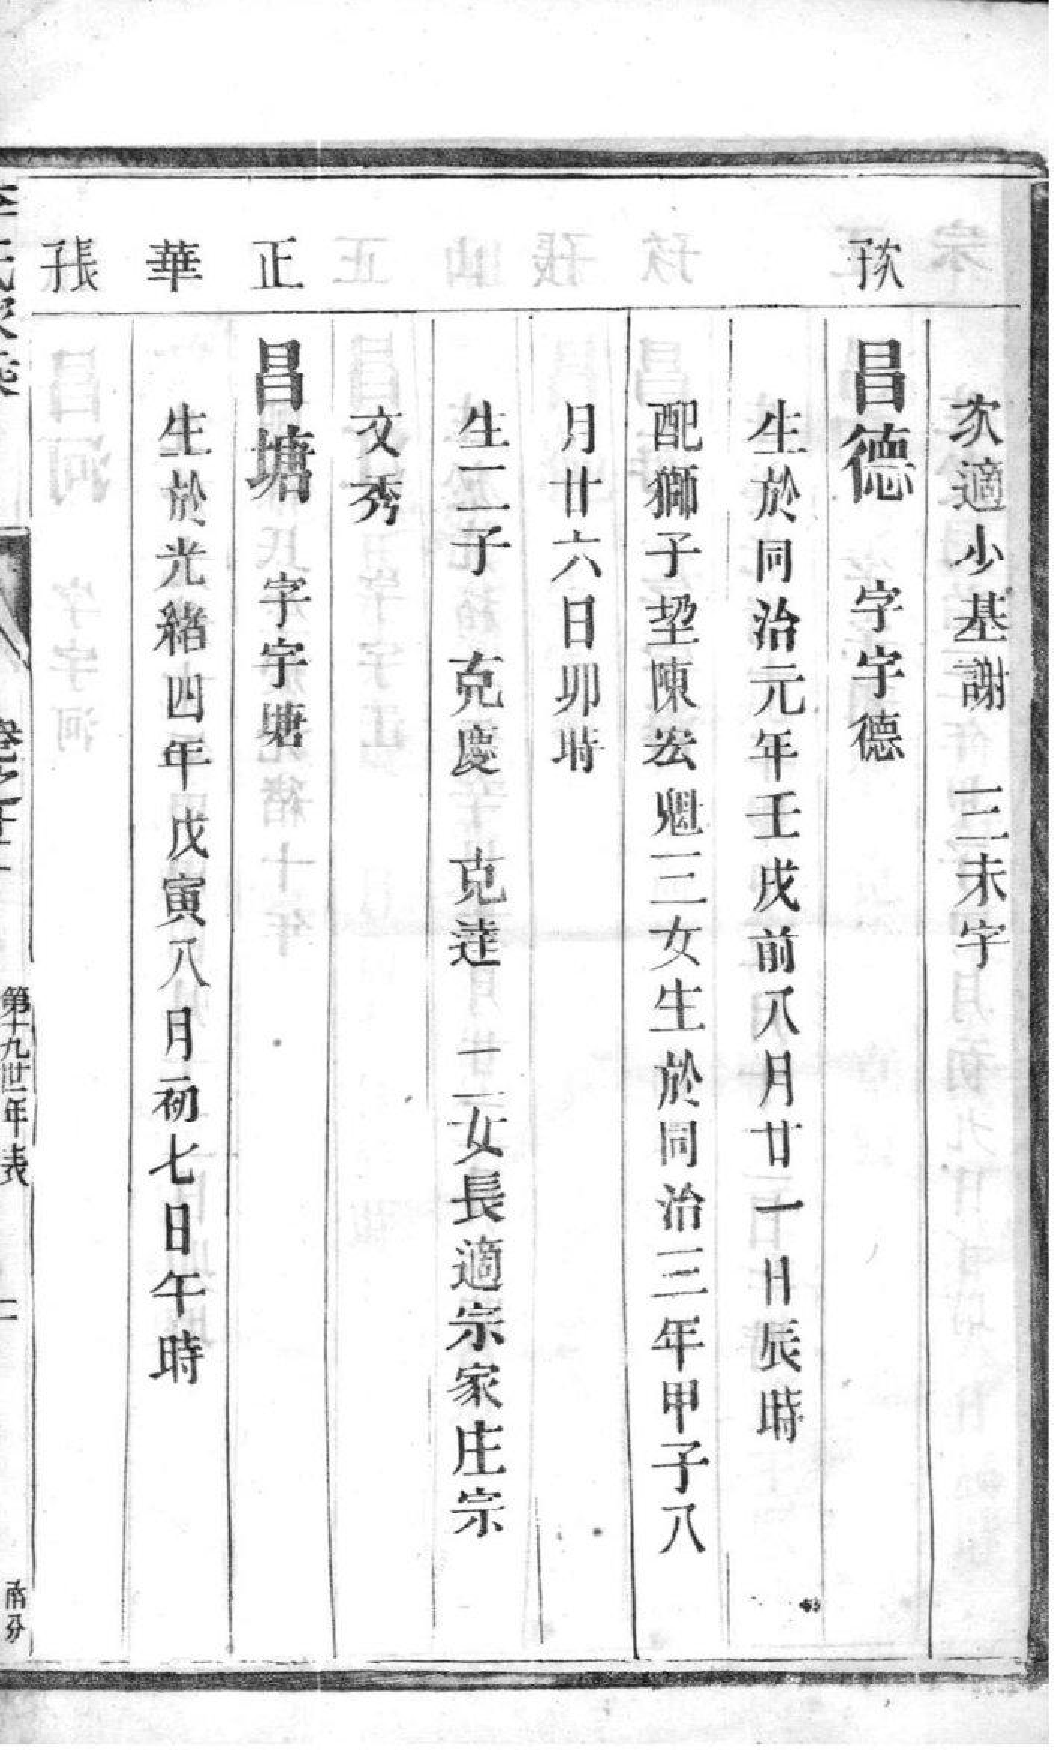 次適少基謝　三未字
㳄
昌德　字字德
生於同治元年壬戌前八月廿一日辰時
配獅子塱陳宏魁三女生於同治三年甲子八
月廿六日卯時
生二子　克慶　克達　二女長適宗家庄宗
文秀
正
昌塘　字字塘
華
生於光緒四年戊寅八月初七日午時
張
第十九世年表